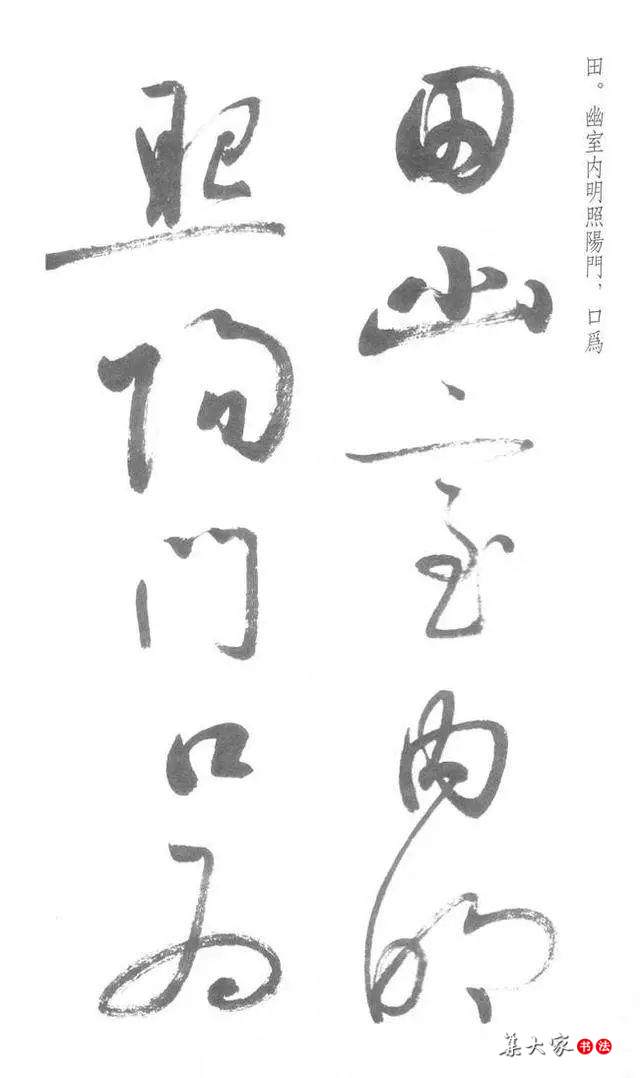 田。幽室内明照陽門，口爲
田幽室内明
照陽門口為
集大家书法